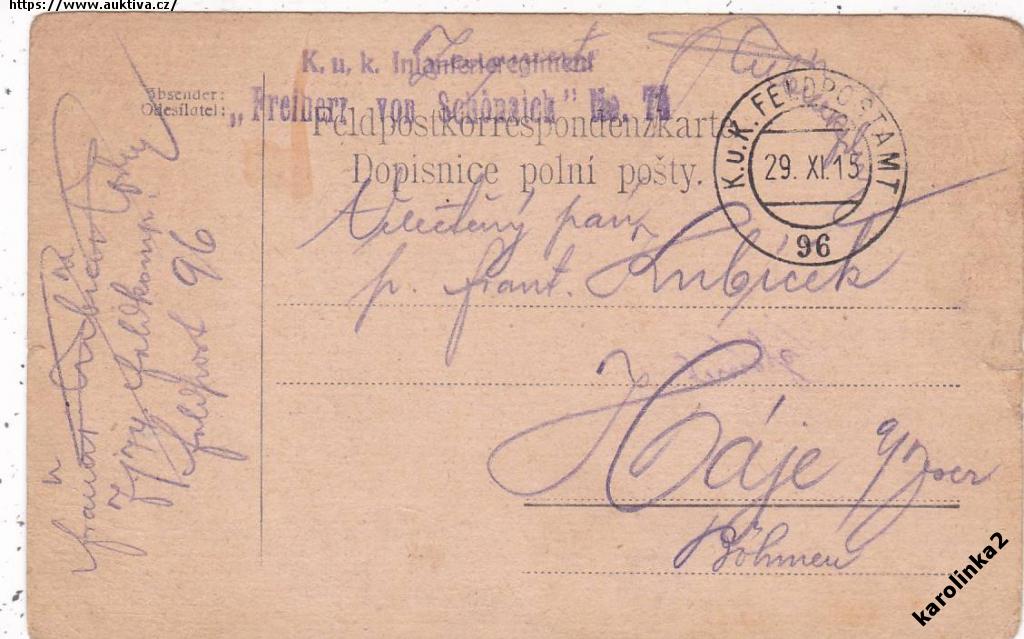 https://www.auktiva.cz/
K. u. k. Infanterieregiment
Absender:
Odesílatel:
„Freiherr von Schönaich" No. 74
Feldpostkorrespondenzkarte
Dopisnice polní pošty.
K.u.K. FELDPOSTAMT
29. XI. 15
96
Velectěný pan
p. frant. Kubíček
Háje a/Iser
Böhmen
Feldpost 96
karolinka2